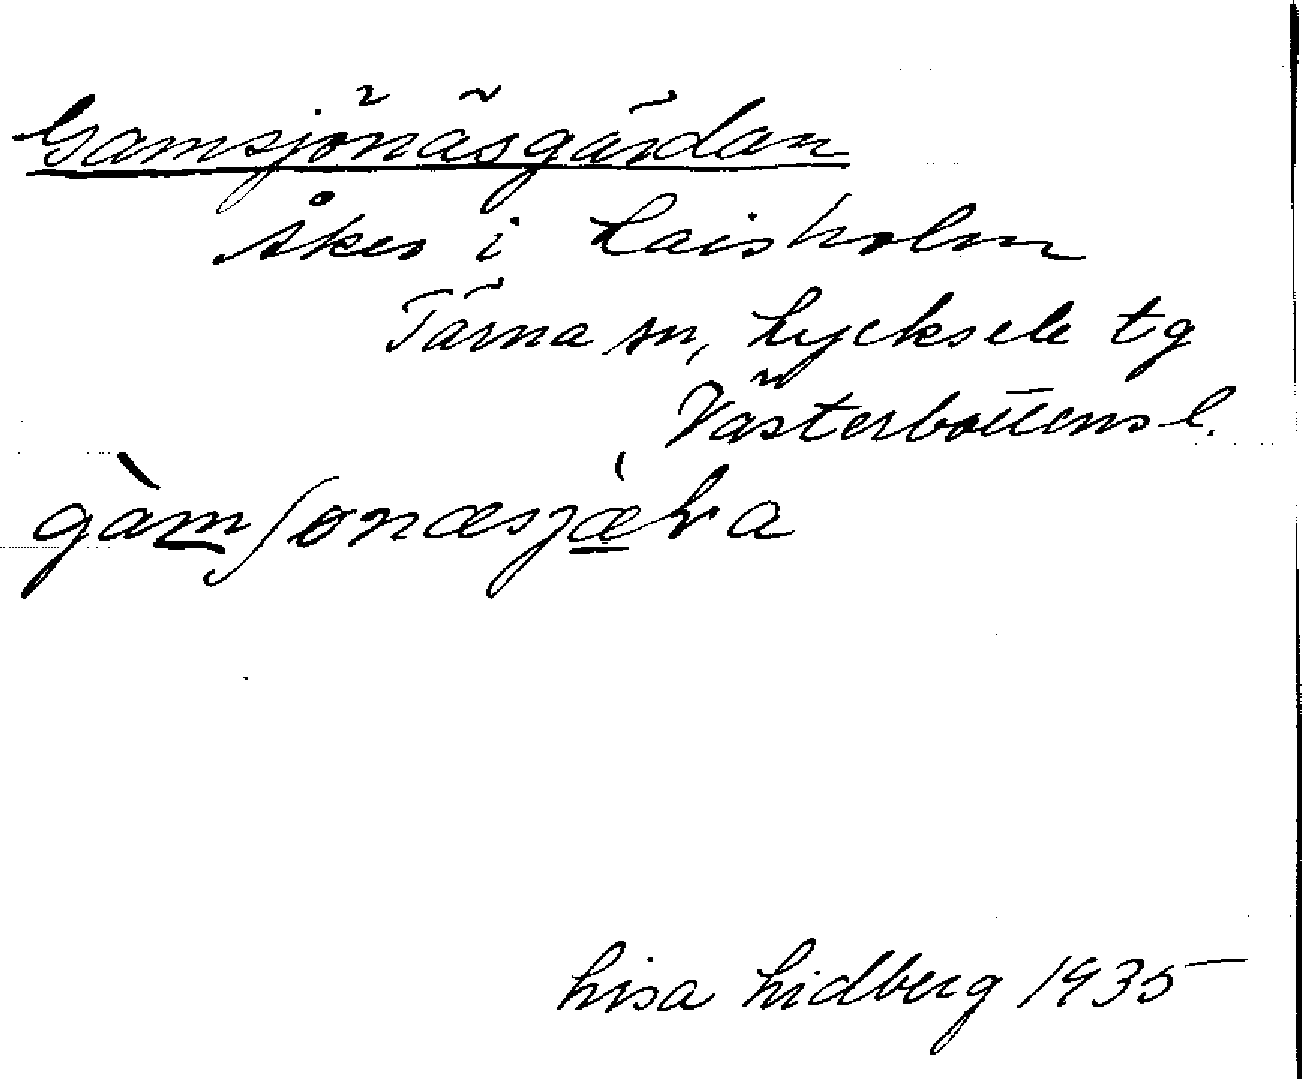 Gamsjönäsgärdan
åker i Laisholm
Tärna sn, Lycksele tg
Västerbottens l.
gàmʃonæsjæ̀ɽa
Lisa Lidberg 1935